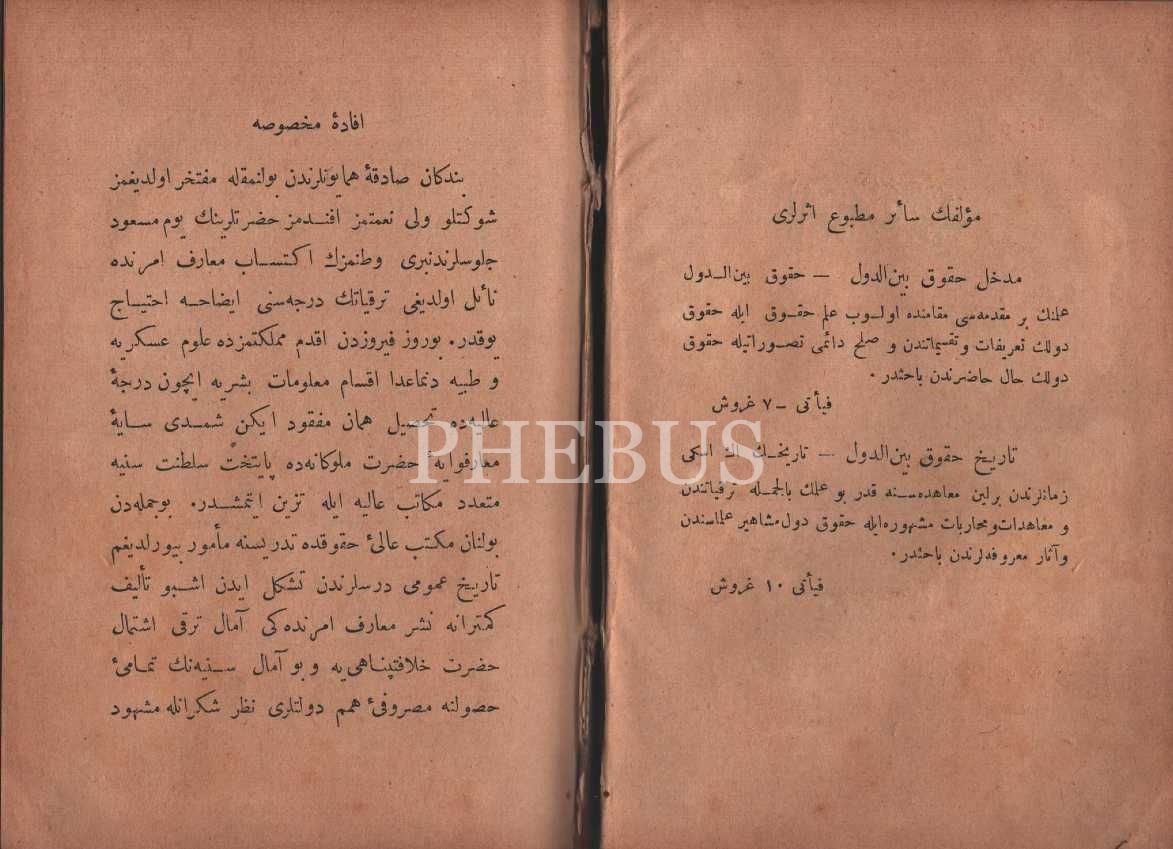 مؤلفك سائر مطبوع اثرلری
مدخل حقوق بین‌الدول — حقوق بین‌الدول
علمنك بر مقدمه‌سی مقامنده اولوب علم حقوق ایله حقوق
دولك تعریفات و تقسیماتندن و صلح دائمی تصوراتیله حقوق
دولك حال حاضرندن باحثدر .
فیأتی — ٧ غروش
تاریخ حقوق بین‌الدول — تاریخك اك اسكی
زمانلرندن برلین معاهده‌سنه قدر بو علمك بالجمله ترقیاتندن
و معاهدات و محاربات مشهوره‌ایله حقوق دول مشاهیر علماسندن
و آثار معروفه‌لرندن باحثدر .
فیأتی ١٠ غروش
افادهٔ مخصوصه
بندكان صادقهٔ همایونلرندن بولنمقله مفتخر اولدیغمز
شوكتلو ولی نعمتمز افندمز حضرتلرینك یوم مسعود
جلوسلرندنبری وطنمزك اكتساب معارف امرنده
نائل اولدیغی ترقیاتك درجه‌سنی ایضاحه احتیاج
یوقدر. بوروز فیروزدن اقدم مملكتمزده علوم عسكریه
و طبیه دنماعدا اقسام معلومات بشریه ایچون درجهٔ
عالیه‌ده تحصیل همان مفقود ایكن شمدی سایهٔ
معارفوایهٔ حضرت ملوكانه‌ده پایتخت سلطنت سنیه
متعدد مكاتب عالیه ایله تزین ایتمشدر. بوجمله‌دن
بولنان مكتب عالیٔ حقوقده تدریسنه مأمور بیورلدیغم
تاریخ عمومی درسلرندن تشكل ایدن اشبو تألیف
كمترانه نشر معارف امرنده‌كی آمال ترقی اشتمال
حضرت خلافتپناهی‌یه و بو آمال سنیه‌نك تمامیٔ
حصولنه مصروفیٔ همم دولتلری نظر شكرانله مشهود
PHEBUS